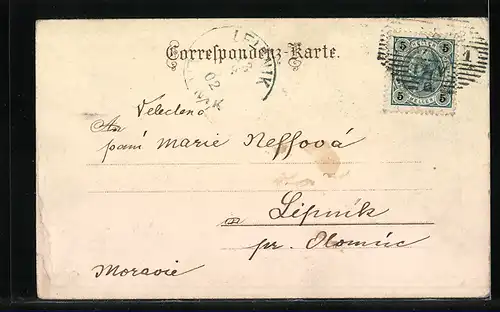 Correspondenz-Karte.
LEIPNIK
02
5 5
HELLER
5 5
1
Velectená
An
paní Marie Neffová
in Lipník
pr. Olomúc
Moravie